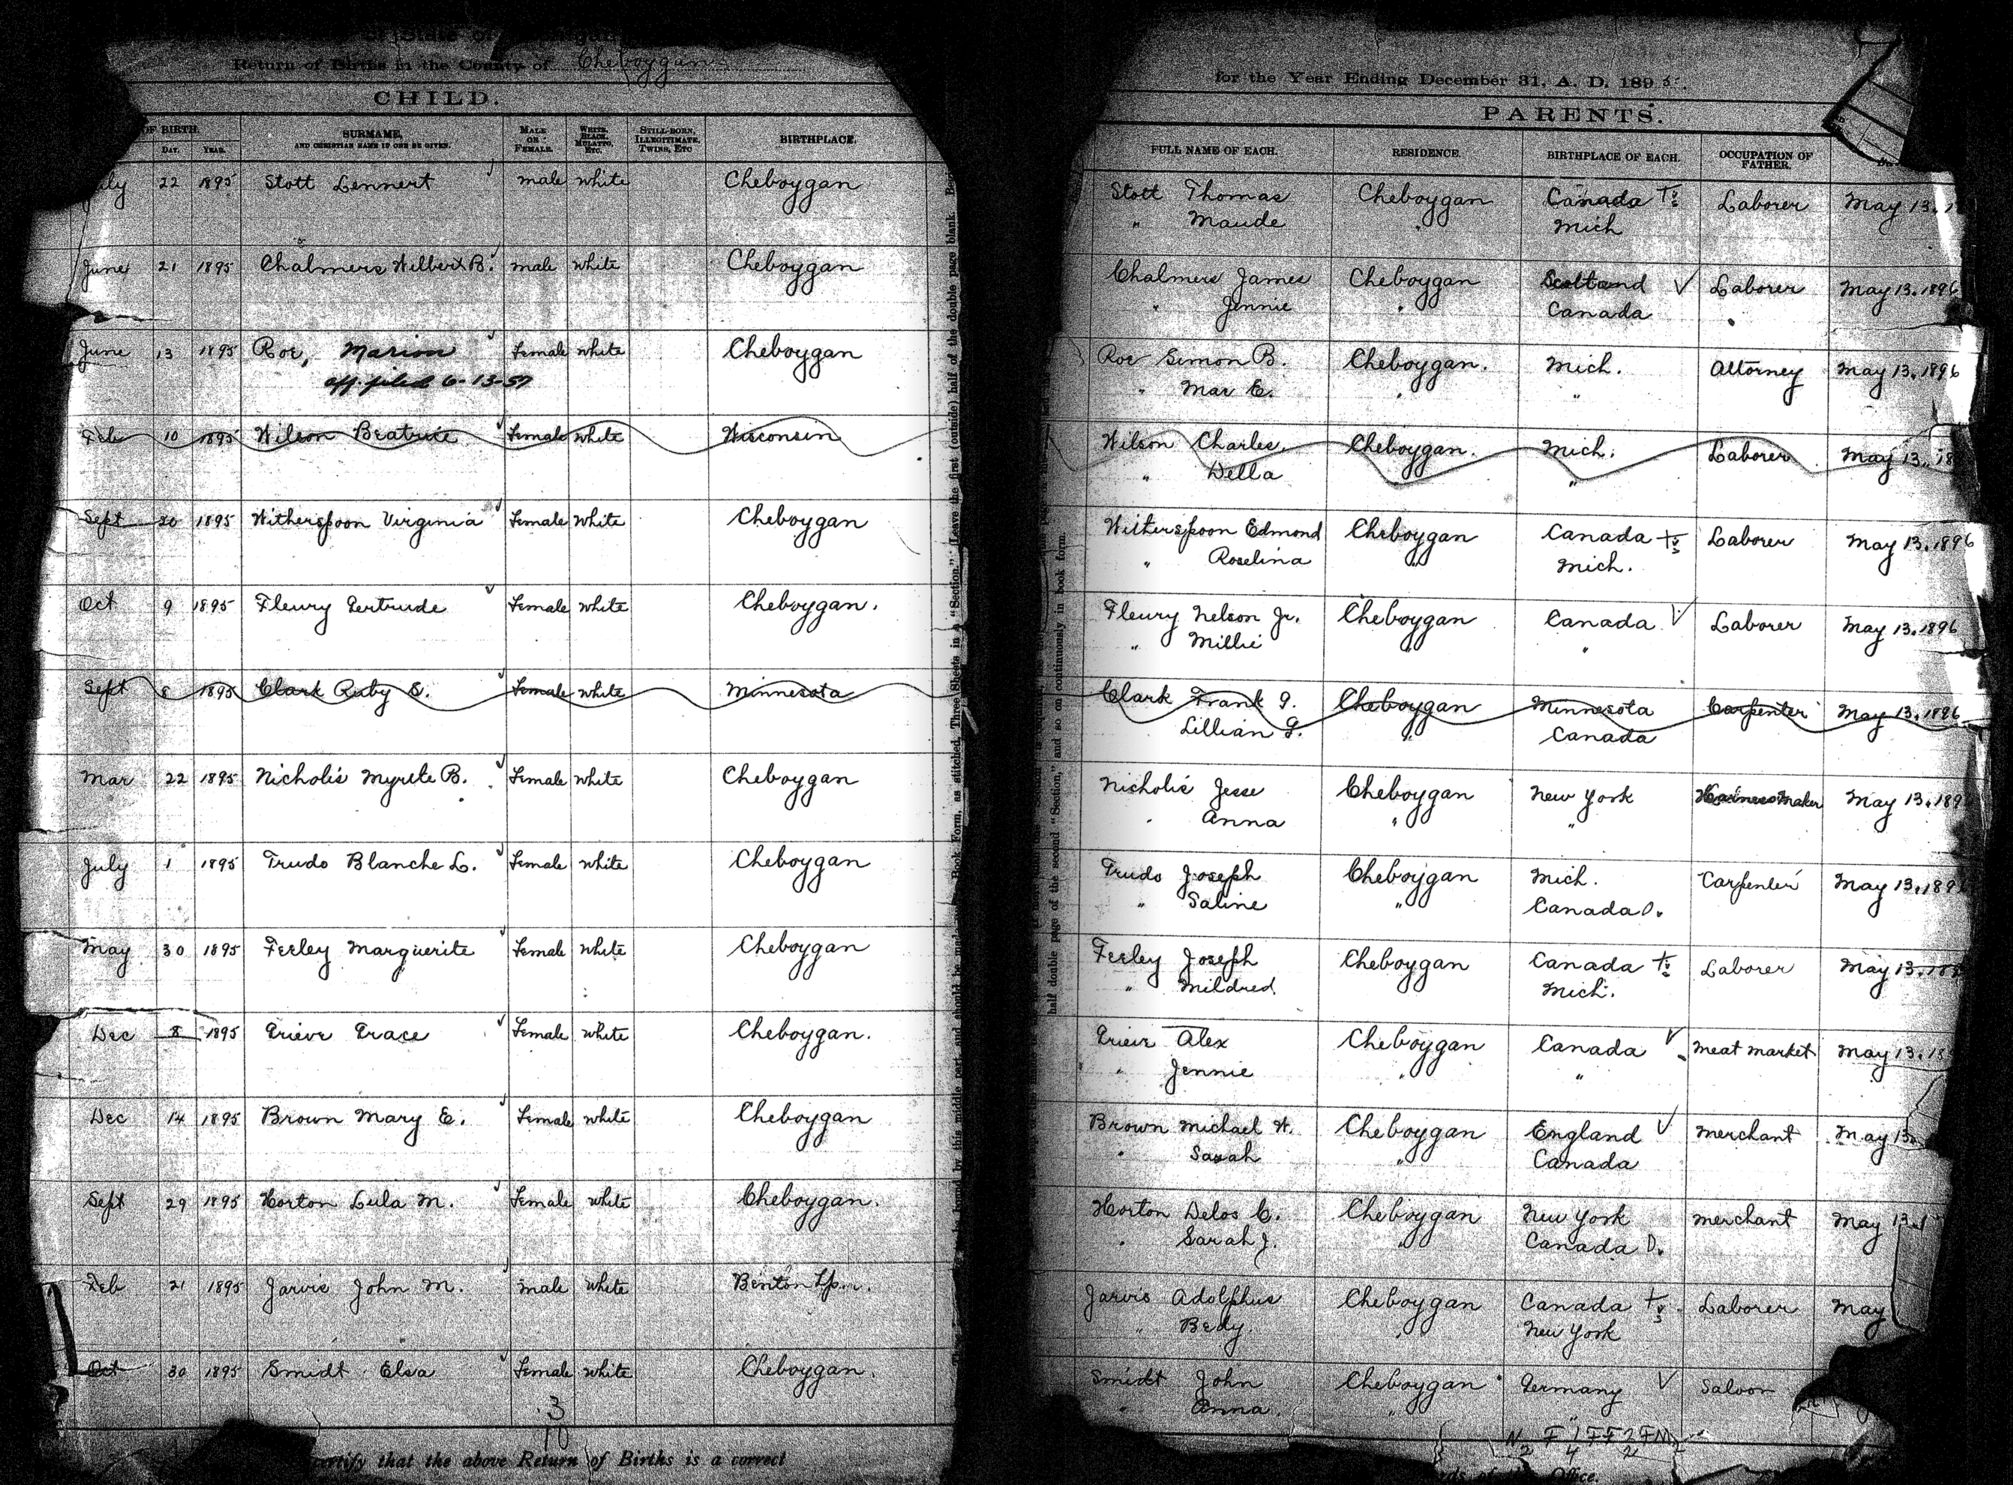 of State of
Return of Births in the County of Cheboygan
CHILD.
OF BIRTH.
DAY. YEAR.
SURNAME,
AND CHRISTIAN NAME IF ONE BE GIVEN.
MALE
OR
FEMALE.
WHITE,
BLACK,
MULATTO,
ETC.
STILL-BORN,
ILLEGITIMATE,
TWINS, ETC
BIRTHPLACE.
July 22 1895 Stott Lennert male white Cheboygan
June 21 1895 Chalmers Wilbert B. male white Cheboygan
June 13 1895 Roe, Marion Female white Cheboygan
aff. filed 6-13-57
Feb 10 1895 Wilson Beatrice Female white Wisconsin
Sept 20 1895 Witherspoon Virginia Female white Cheboygan
Oct 9 1895 Fleury Gertrude Female white Cheboygan.
Sept 8 1895 Clark Ruby E. Female white Minnesota
Mar 22 1895 Nicholis Myrtle B. Female white Cheboygan
July 1 1895 Trudo Blanche L. Female white Cheboygan
May 30 1895 Feeley Marguerite Female white Cheboygan
Dec 8 1895 Grieve Grace Female white Cheboygan.
Dec 14 1895 Brown Mary E. Female white Cheboygan
Sept 29 1895 Horton Lula M. Female white Cheboygan.
Feb 21 1895 Jarvis John M. male white Benton Tp.
Oct 30 1895 Smidt Elsa Female white Cheboygan.
3
10
certify that the above Return of Births is a correct
to be bound by this middle part, and should be made in Book Form, as stitched, Three Sheets in a "Section." Leave the first (outside) half of the double page blank.
half double page of the second "Section," and so on continuously in book form.
for the Year Ending December 31, A. D. 1895.
PARENTS.
FULL NAME OF EACH.
RESIDENCE.
BIRTHPLACE OF EACH.
OCCUPATION OF
FATHER.
Stott Thomas Cheboygan Canada Laborer May 13. 1
" Maude " Mich
Chalmers James Cheboygan Scotland Laborer May 13. 1896
" Jennie " Canada
Roe Simon B. Cheboygan. Mich. Attorney May 13. 1896
" Mar E. " "
Wilson Charles. Cheboygan. Mich. Laborer May 13. 18
" Della "
Witherspoon Edmond Cheboygan Canada Laborer May 13. 1896
" Roselina " Mich.
Fleury Nelson Jr. Cheboygan Canada Laborer May 13. 1896
" Millie " "
Clark Frank G. Cheboygan Minnesota Carpenter May 13. 1896
Lillian G. " Canada
Nicholis Jesse Cheboygan New York Harness Maker May 13. 189
" Anna " "
Trudo Joseph Cheboygan Mich. Carpenter May 13. 1896
" Saline " Canada O.
Feeley Joseph Cheboygan Canada Laborer May 13. 18
" Mildred Mich.
Grieve Alex Cheboygan Canada Meat market May 13. 18
" Jennie " "
Brown Michael W. Cheboygan England Merchant May 13
" Sarah " Canada
Horton Delos C. Cheboygan New York Merchant May 13. 1
" Sarah J. " Canada O.
Jarvis Adolphus Cheboygan Canada Laborer May
" Bedy. " New York
Smidt John Cheboygan Germany Saloon
" Anna. " "